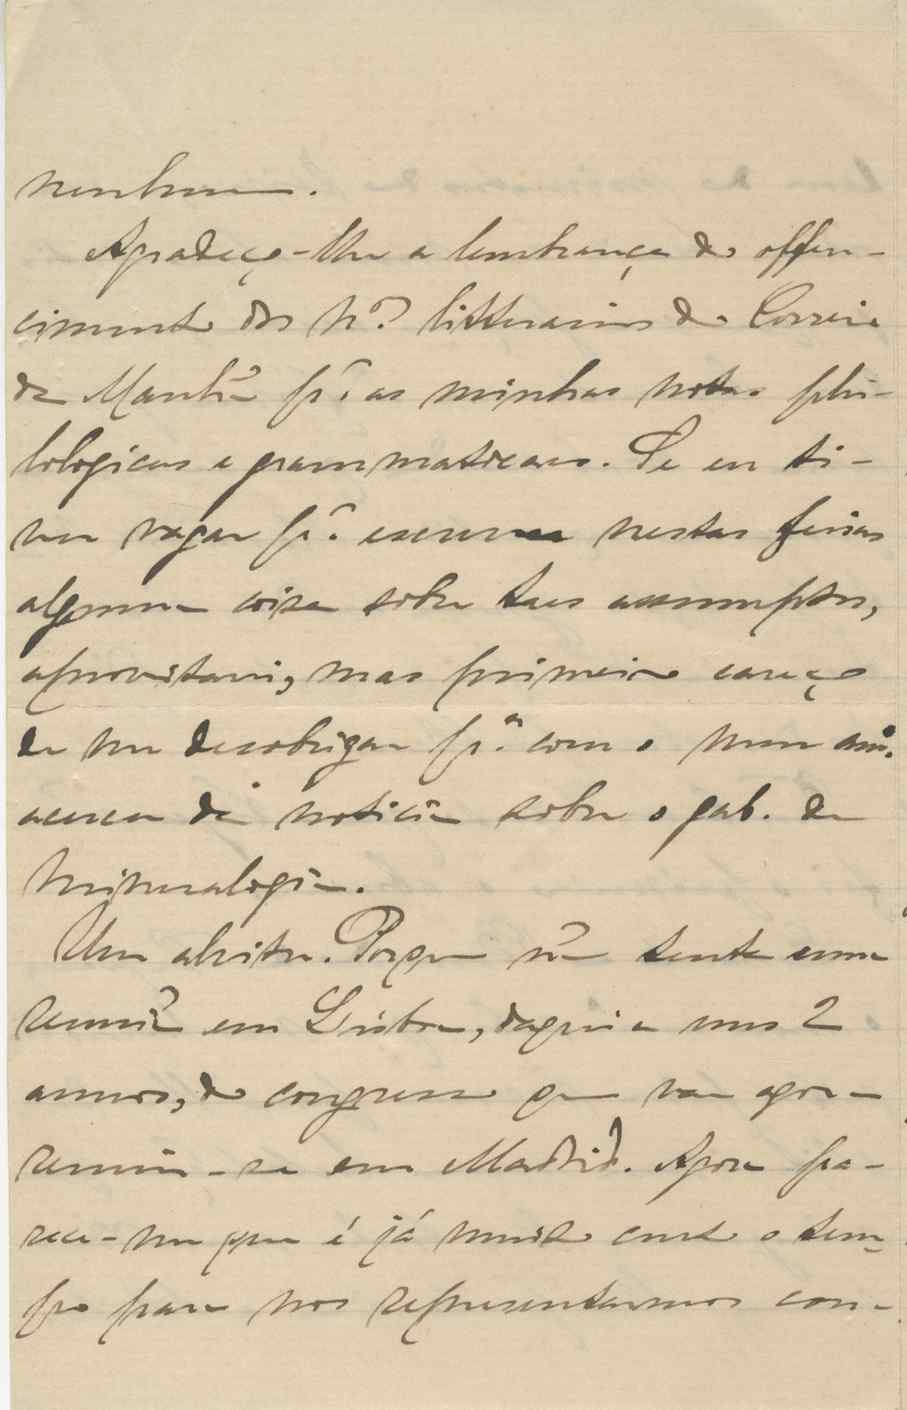 nenhum.
Agradeço-lhe a lembrança do offere-
cimento dos nos. litterarios do Correio
da Manhã pa. as minhas notas phi-
lologicas e grammaticaes. Se eu ti-
ver vagar pa. escrever nestas ferias
alguma coisa sobre taes assumptos,
aproveitarei, mas primeiro careço
de me desobrigar pa. com o meu ami.
acerca da noticia sobre o gab. de
Mineralogia.
Um alvitre. Porque não tenta uma
reunião em Lisboa, daqui a uns 2
annos, do congresso que vae agora
reunir-se em Madrid. Agora pa-
rece-me que é já muito curto o tem-
po para nos representarmos con-